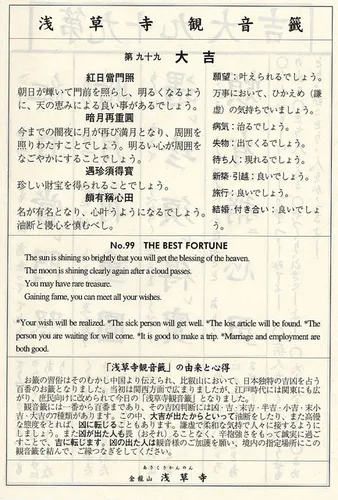 浅草寺観音籤
第九十九 大吉
紅日當門照
朝日が輝いて門前を照らし、明るくなるように、天の恵みによる良い事があるでしょう。
暗月再重圓
今までの闇夜に月が再び満月となり、周囲を照りわたすことでしょう。明るい心が周囲をなごやかにすることでしょう。
遇珍須得寳
珍しい財宝を得られることでしょう。
頗有稱心田
名が有名となり、心叶うようになるでしょう。
油断と慢心を慎むべし。
願望：叶えられるでしょう。
万事において、ひかえめ（謙虚）の気持ちでいましょう。
病気：治るでしょう。
失物：出てくるでしょう。
待ち人：現れるでしょう。
新築・引越：良いでしょう。
旅行：良いでしょう。
結婚・付き合い：良いでしょう。
No.99 THE BEST FORTUNE
The sun is shining so brightly that you will get the blessing of the heaven.
The moon is shining clearly again after a cloud passes.
You may have rare treasure.
Gaining fame, you can meet all your wishes.
*Your wish will be realized. *The sick person will get well. *The lost article will be found. *The
person you are waiting will come. *It is good to make a trip. *Marriage and employment are
both good.
「浅草寺観音籤」の由来と心得
お籤の習俗はそのむかし中国より伝えられ、比叡山において、日本独特の吉凶を占う
百番のお籤となりました。当初は関西方面で広まりましたが、江戸時代には関東にも広
がり、庶民向けに改められて今日の「浅草寺観音籤」となりました。
観音籤には一番から百番まであり、その吉凶判断には凶・吉・末吉・半吉・小吉・末小
吉・大吉の7種類があります。この中、大吉が出たからといって油断をしたり、また高慢
な態度をとれば、凶に転じることもあります。謙虚で柔和な気持で人々に接するように
しましょう。また凶が出た人も畏（おそ）れることなく、辛抱強さをもって誠実に過ご
すことで、吉に転じます。凶の出た人は観音様のご加護を願い、境内の指定場所にこの
観音籤を結んで、ご縁つなぎをしてください。
あさくさかんのん
金龍山 浅草寺